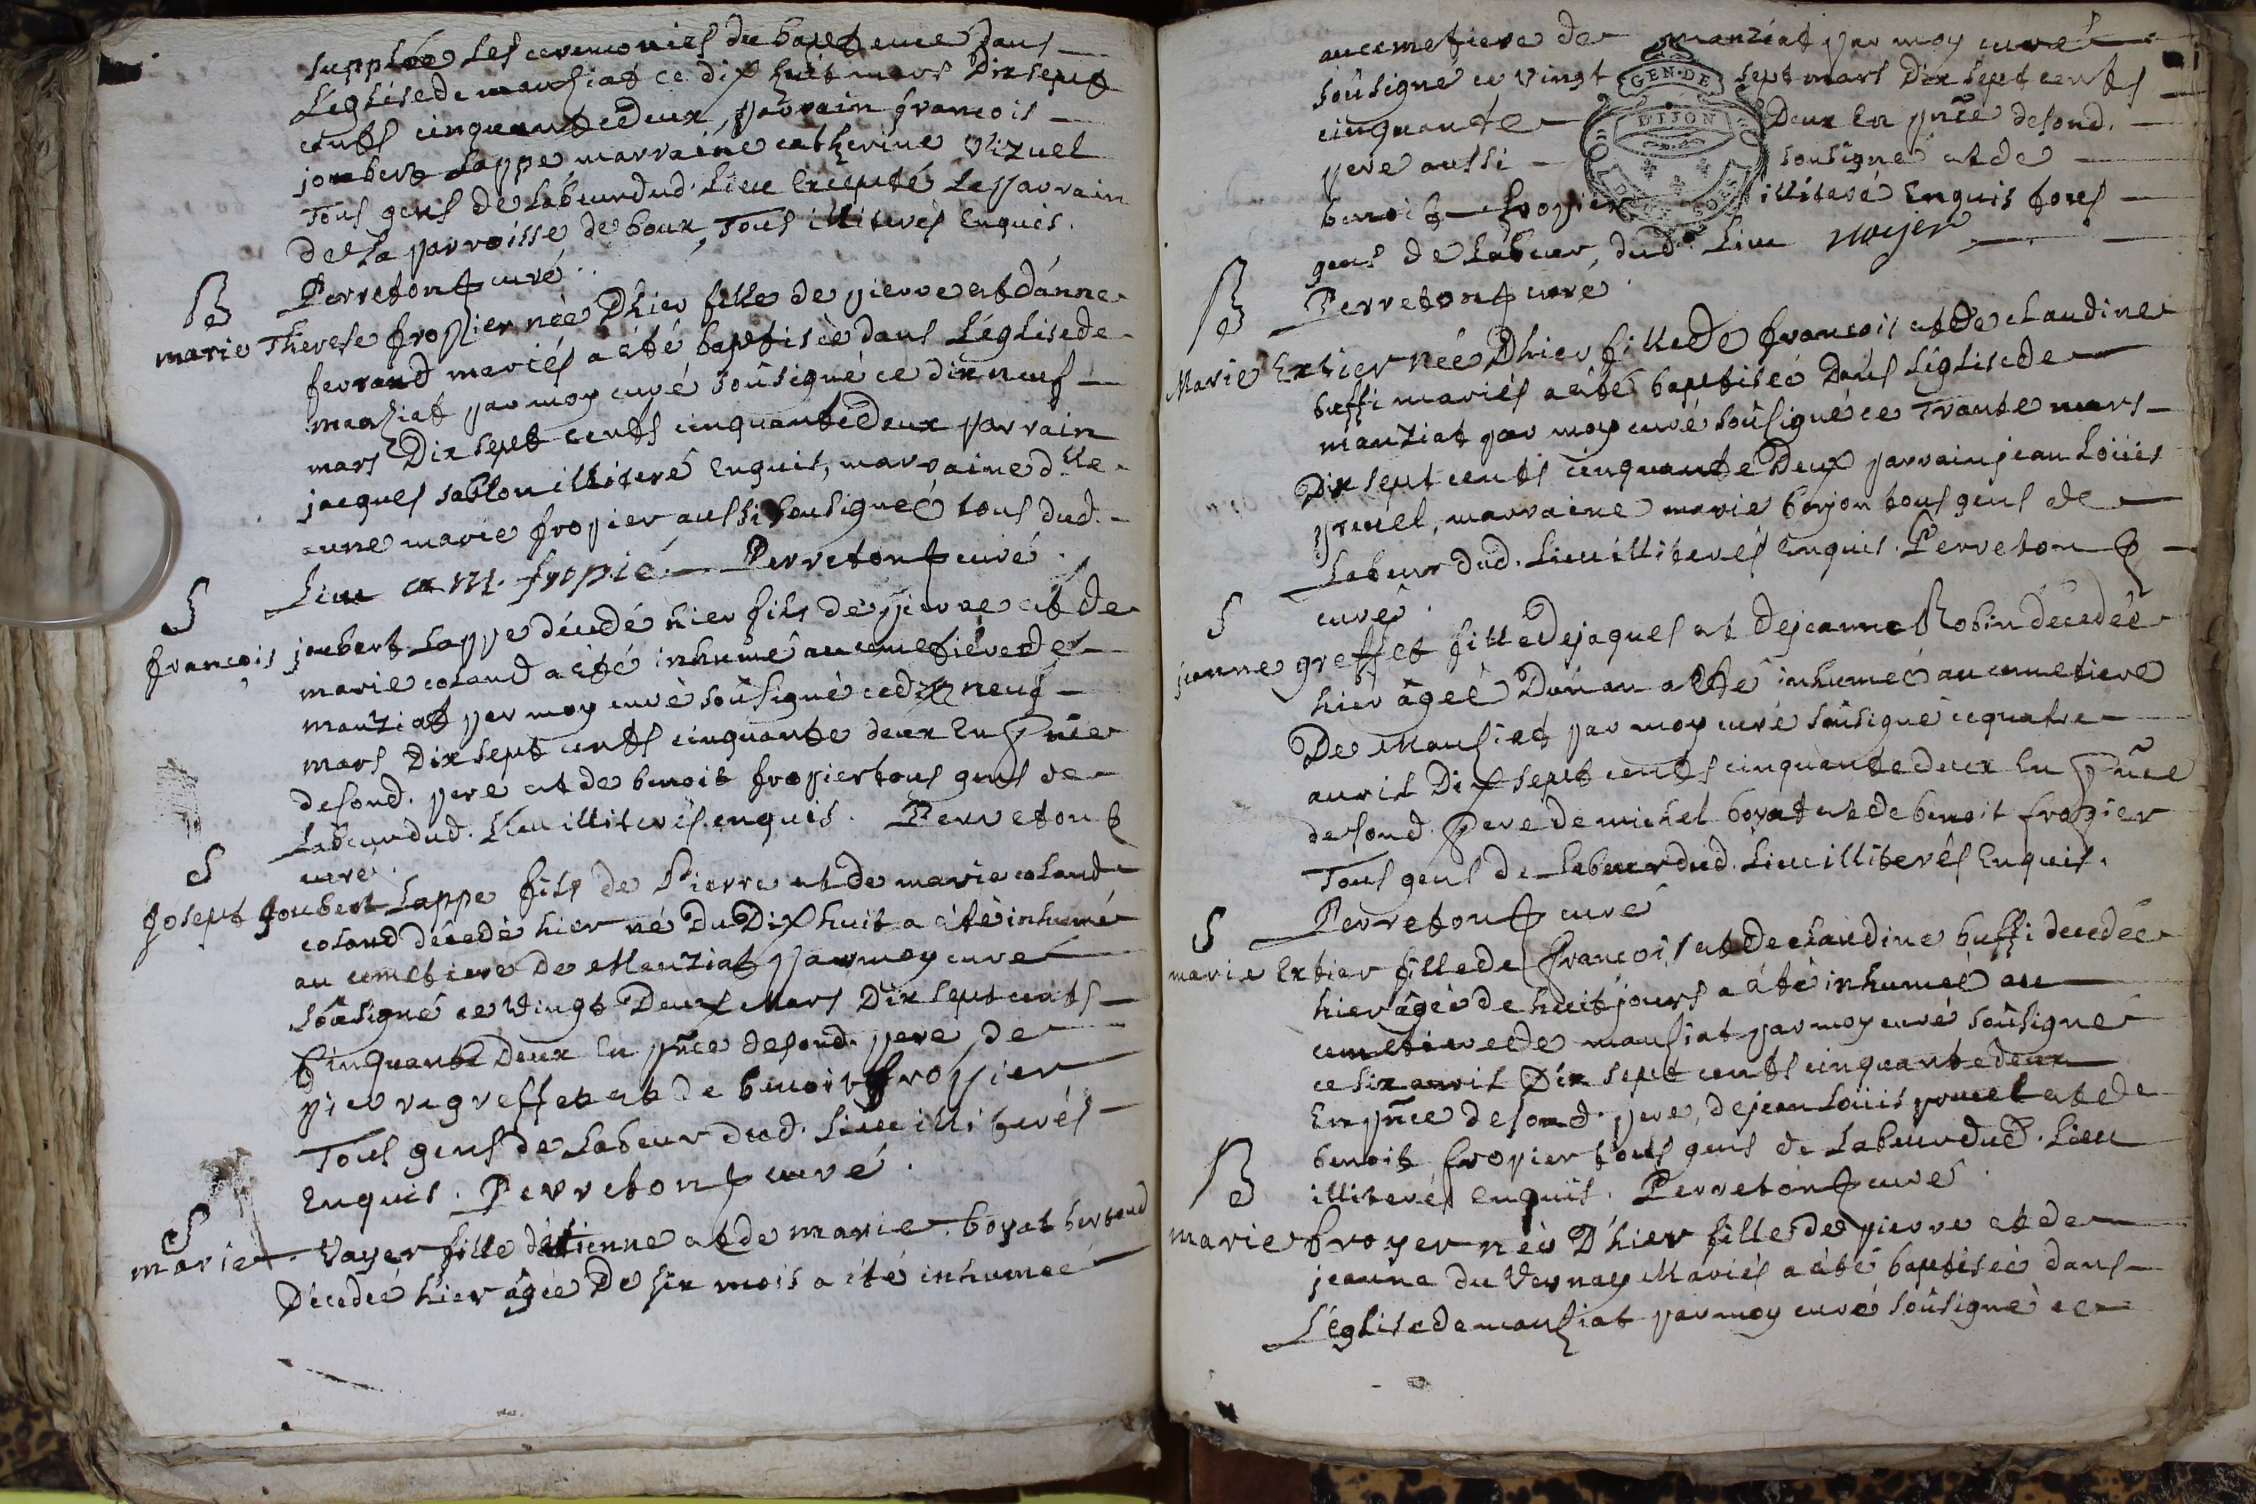 suppléé les ceremonies du bapteme dans
L'église de manziat ce dix huit mars Dix sept
cents cinquante deux, parrain francois
joubert Lappe marraine catherine
Tous gens de Labeur dud. Lieu Excepté Le parrain
de La parroisse de boux, Tous illiterés Enquis.
Perreton curé
B
marie Therese fropier née D'hier fille de pierre et d'anne
ferrand mariés a été baptisée dans L'église de
manziat par moy curé soûsigné ce dix neuf
mars Dix sept cents cinquante Deux parrain
jacques sablon illiteré Enquis, marraine d.lle
anne marie fropier aussi sousignée tous dud.
Lieu a m. fropié. Perreton curé.
S
francois joubert Lappe décédé hier fils de pierre et de
marie coland a été inhumé au cemetiére de
manziat par moy curé soûsigné ce dix neuf
mars Dix sept cents cinquante deux En p̃nce
desond. pere et de benoit fropier tous gens de
Labeur dud. Lieu illiterés enquis. Perreton
curé.
S
joseph joubert Lappe fils de Pierre et de marie coland
coland décedé hier né Du Dix huit a été inhumé
au cemetiere de Manziat par moy curé
soûsigné ce Vingt Deux Mars Dix sept cents
Cinquante Deux En p̃nce desond. pere, de
pierre greffet et de benoit fropier
Tous gens de Labeur dud. Lieu illiterés
Enquis. Perreton curé.
S
marie Vayer fille d'étienne et de marie boyat bertoud
Décedée hier âgée De six mois a été inhumée
au cemetiere de manziat par moy curé
soûsigné ce vingt sept mars Dix sept cents
cinquante Deux En p̃nce desond.
pere aussi sousigné et de
benoit fropier illiteré Enquis tous
gens de Labeur, dud. Lieu Noyer
Perreton curé.
B
Marie Extier née D'hier fille de francois et de claudine
buffi mariés a été baptisée Dans L'église de
manziat par moy curé soûsigné ce Trante mars
Dix sept cents cinquante Deux parrain jean Loüis
pruel, marraine marie borjon tous gens de
Labeur dud. Lieu illiterés Enquis. Perreton
curé.
S
jeanne greffet fille De jaques et De jeanne Robin décedée
hier âgée D'un an a été inhumée au cemetiere
De Manziat par moy curé soûsigné ce quatre
avril Dix sept cents cinquante deux En p̃nce
desond. Pere de michel boyat et de benoit fropier
Tous gens de Labeur dud. Lieu illiterés Enquis.
Perreton curé
S
marie Extier fille de francois et De claudine buffi decedée
hier âgée de huit jours a été inhumée au
cemetiere de manziat par moy curé soûsigné
ce six avril Dix sept cents cinquante deux
En p̃nce desond. pere, de jean Loüis pruel et de
benoit fropier tous gens de Labeur dud. Lieu
illiterés Enquis. Perreton curé.
B
marie broyer née D'hier fille de pierre et de
jeanne du Vernay Mariés a été baptisée dans
L'église de manziat par moy curé soûsigné ce
GEN·DE
DIJON